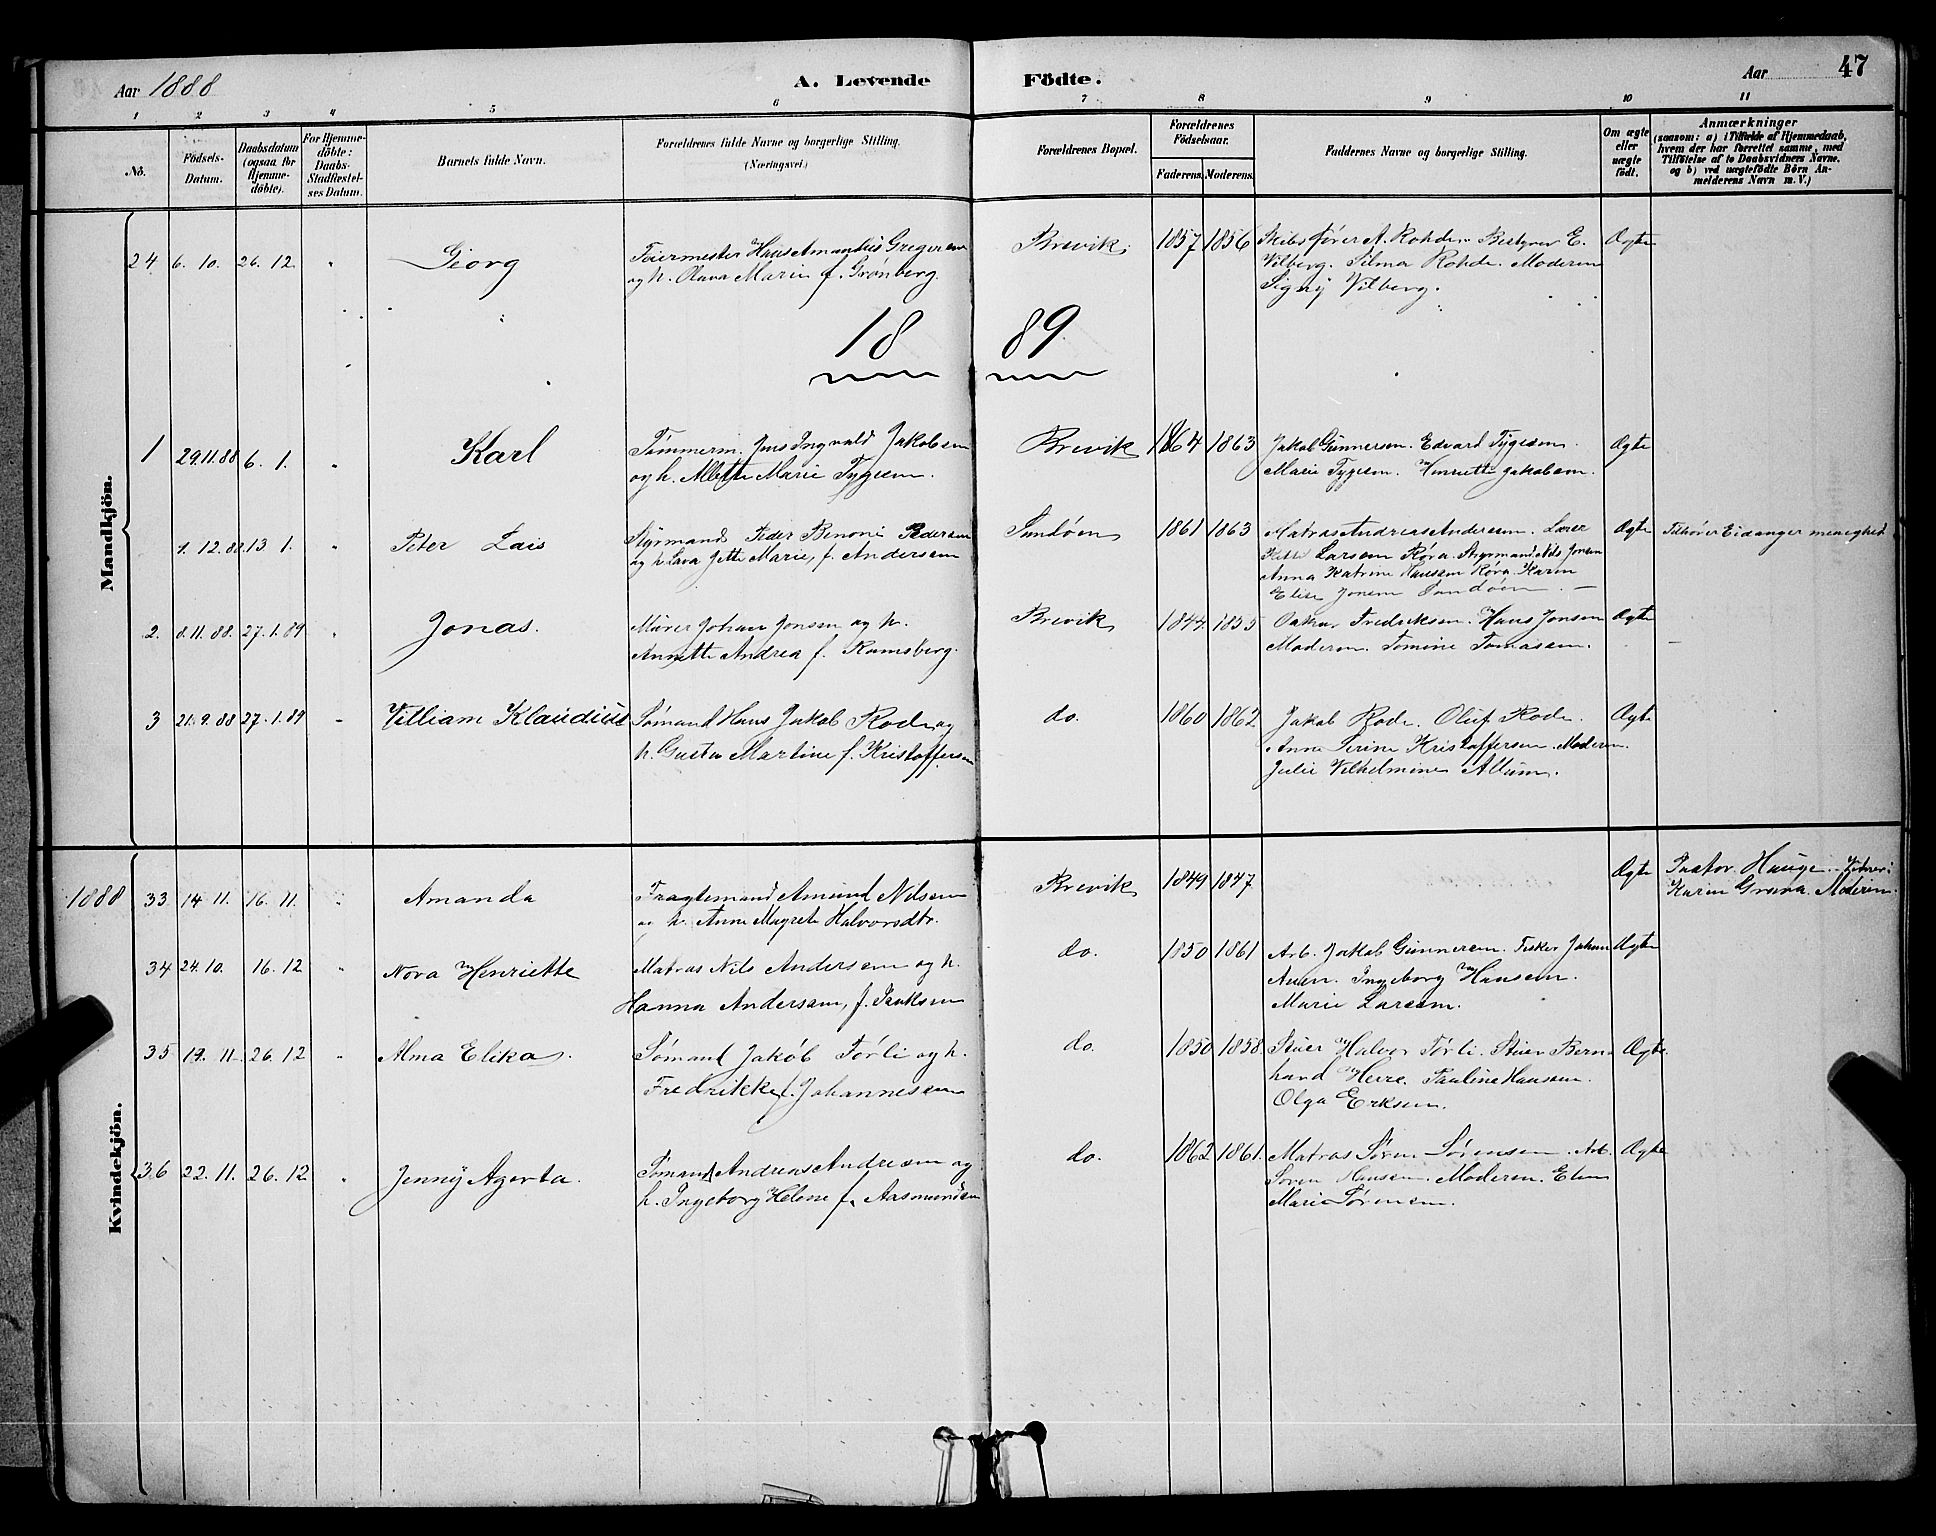 Aar 1888
A. Levende Födte.
Aar
47
1 2 3 4 5 6 7 8 9 10 11
No.
Födsels-
Datum.
Daabsdatum
(ogsaa for
Hjemme-
döbte).
For Hjemme-
döbte:
Daabs-
Stadfæstel-
ses Datum.
Barnets fulde Navn.
Forældrenes fulde Navne og borgerlige Stilling.
(Næringsvei.)
Forældrenes Bopæl.
Forældrenes
Födselsaar.
Faderens. Moderens.
Faddernes Navne og borgerlige Stilling.
Om ægte
eller
uægte
födt.
Anmærkninger
(saasom: a) i Tilfælde af Hjemmedaab,
hvem der har forrettet samme, med
Tilföielse af to Daabsvidners Navne,
og b) ved uægtefödte Börn An-
melderens Navn m. V.)
Mandkjön.
24 6. 10. 26. 12. " Georg
Feiermester Hans Amandus Gregersen
og h. Olava Marie f. Grønberg.
Brevik. 1857 1856
Skibsfører A. Rohde. Bestyrer E.
Vilberg. Silma Rohde. Moderen
Signy Vilberg.
Ægte
18 89
1 29.11.88 6. 1. " Karl
Tømmerm. Jens Ingvald Jakobsen
og h. Albette Marie Tygesen.
Brevik 1864 1863
Jakob Gunnersen. Edvard Tygesen.
Marie Tygesen. Henriette Jakobsen.
Ægte
1. 12.88 13. 1. " Peter Lais
Styrmand Peder Benoni Pedersen
og h. Lava Jette Marie, f. Andersen
Sundøen 1861 1863
Matros Andreas Andersen. Lærer
Larsen Røra. Styrmand Nils Jonsen
Anna Katrine Hansen Røra. Karen
Elise Jonsen Sundøen. —
Ægte
Tilhører Eidanger menighed
2. 8.11.88. 27.1.89 " Jonas.
Murer Johan Jonsen og h.
Annette Andrea f. Ramsberg.
Brevik 1844 1855
Oskar Fredriksen. Hans Jonsen
Moderen. Tomine Tomasen.
Ægte
3 21.9.88 27.1.89 " Villiam Klaudius
Sømand Hans Jakob Rode og
h. Gusta Martine f. Kristoffersen
do. 1860 1862
Jakob Rode. Oluf Rode.
Anne Serine Kristoffersen. Moderen.
Julie Vilhelmine Allum.
Ægte
Kvindekjön.
1888 33 14. 11. 16. 11. " Amanda
Fragtemand Amund Nilsen
og h. Anne Magrete Halvorsdtr.
Brevik 1849 1847
Ægte
Pastor Hauge.
Karen Grava. Moderen.
34 24.10. 16. 12 " Nora Henriette
Matros Nils Andersen og h.
Hanna Andersen, f. Isaksen
do. 1850 1861
Arb. Jakob Gunnersen. Fisker Johan
Ingeborg Hansen.
Marie Larsen.
Ægte
35 17. 11. 26. 12 " Alma Elika.
Sømand Jakob Tørli og h.
Fredrikke f. Johannesen
do. 1850 1858
Stuer Halvor Tørli. Stuer Bern
hard Herre. Pauline Hansen.
Olga Eriksen.
Ægte
36 22. 11. 26. 12 " Jenny Agerta.
Sømand Andreas Andresen og
h. Ingeborg Helene f. Aasmundsen
do. 1862 1861.
Matros Søren Sørensen. Arb.
Søren Hansen. Moderen. Elen
Marie Sørensen.
Ægte